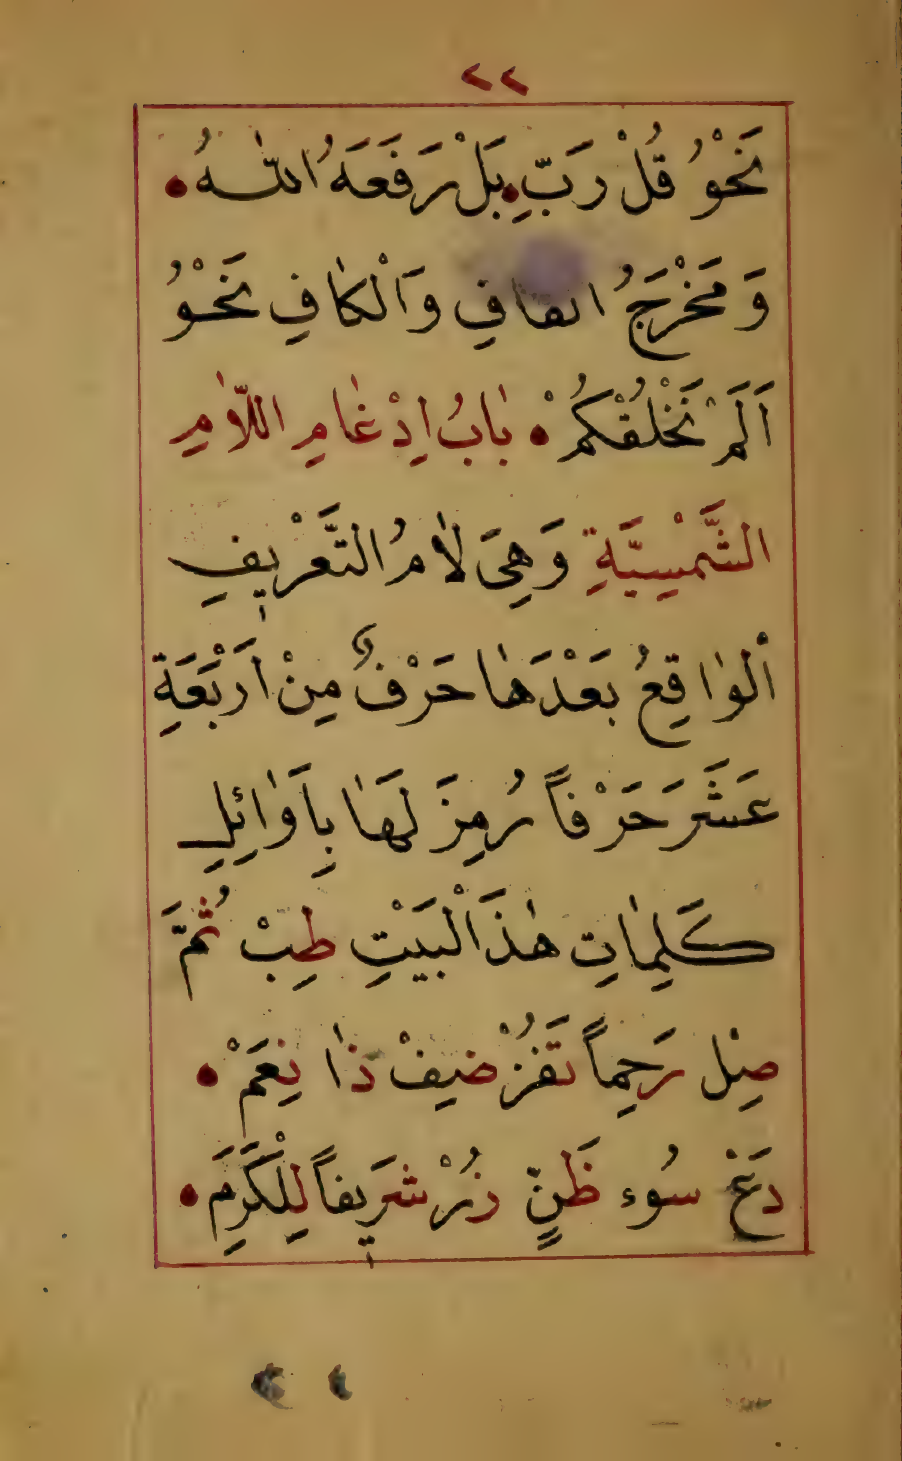 ٢٢
نَحْوُ قُلْ رَبِّ. بَلْ رَفَعَهُ اللّٰهُ.
وَمَخْرَجُ القافِ وَالْكافِ نَحْوُ
اَلَمْ نَخْلُقْكُمْ. بابُ اِدْغامِ اللّامِ
الشَّمْسِيَّةِ وَهِىَ لامُ التَّعْرِيفِ
اَلْواقِعُ بَعْدَها حَرْفٌ مِنْ اَرْبَعَةِ
عَشَرَ حَرْفاً رُمِزَ لَها بِاَوائِلِ
كَلِماتِ هٰذَا لْبَيْتِ طِبْ ثُمَّ
صِلْ رَحِماً تَفُزْ ضِيفْ ذا نِعَمْ.
دَعْ سُوءَ ظَنٍّ زُرْ شَرِيفاً لِلْكَرَمَ.